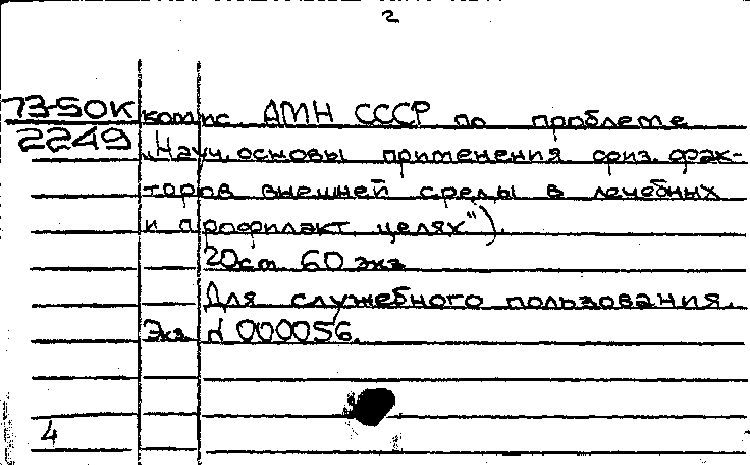 2
73-50К комис. АМН СССР по проблеме
2249 „Науч. основы применения физ. фак-
торов внешней среды в лечебных
и профилакт. целях").
20см 60 экз
Для служебного пользования.
Экз. N 000056.
4